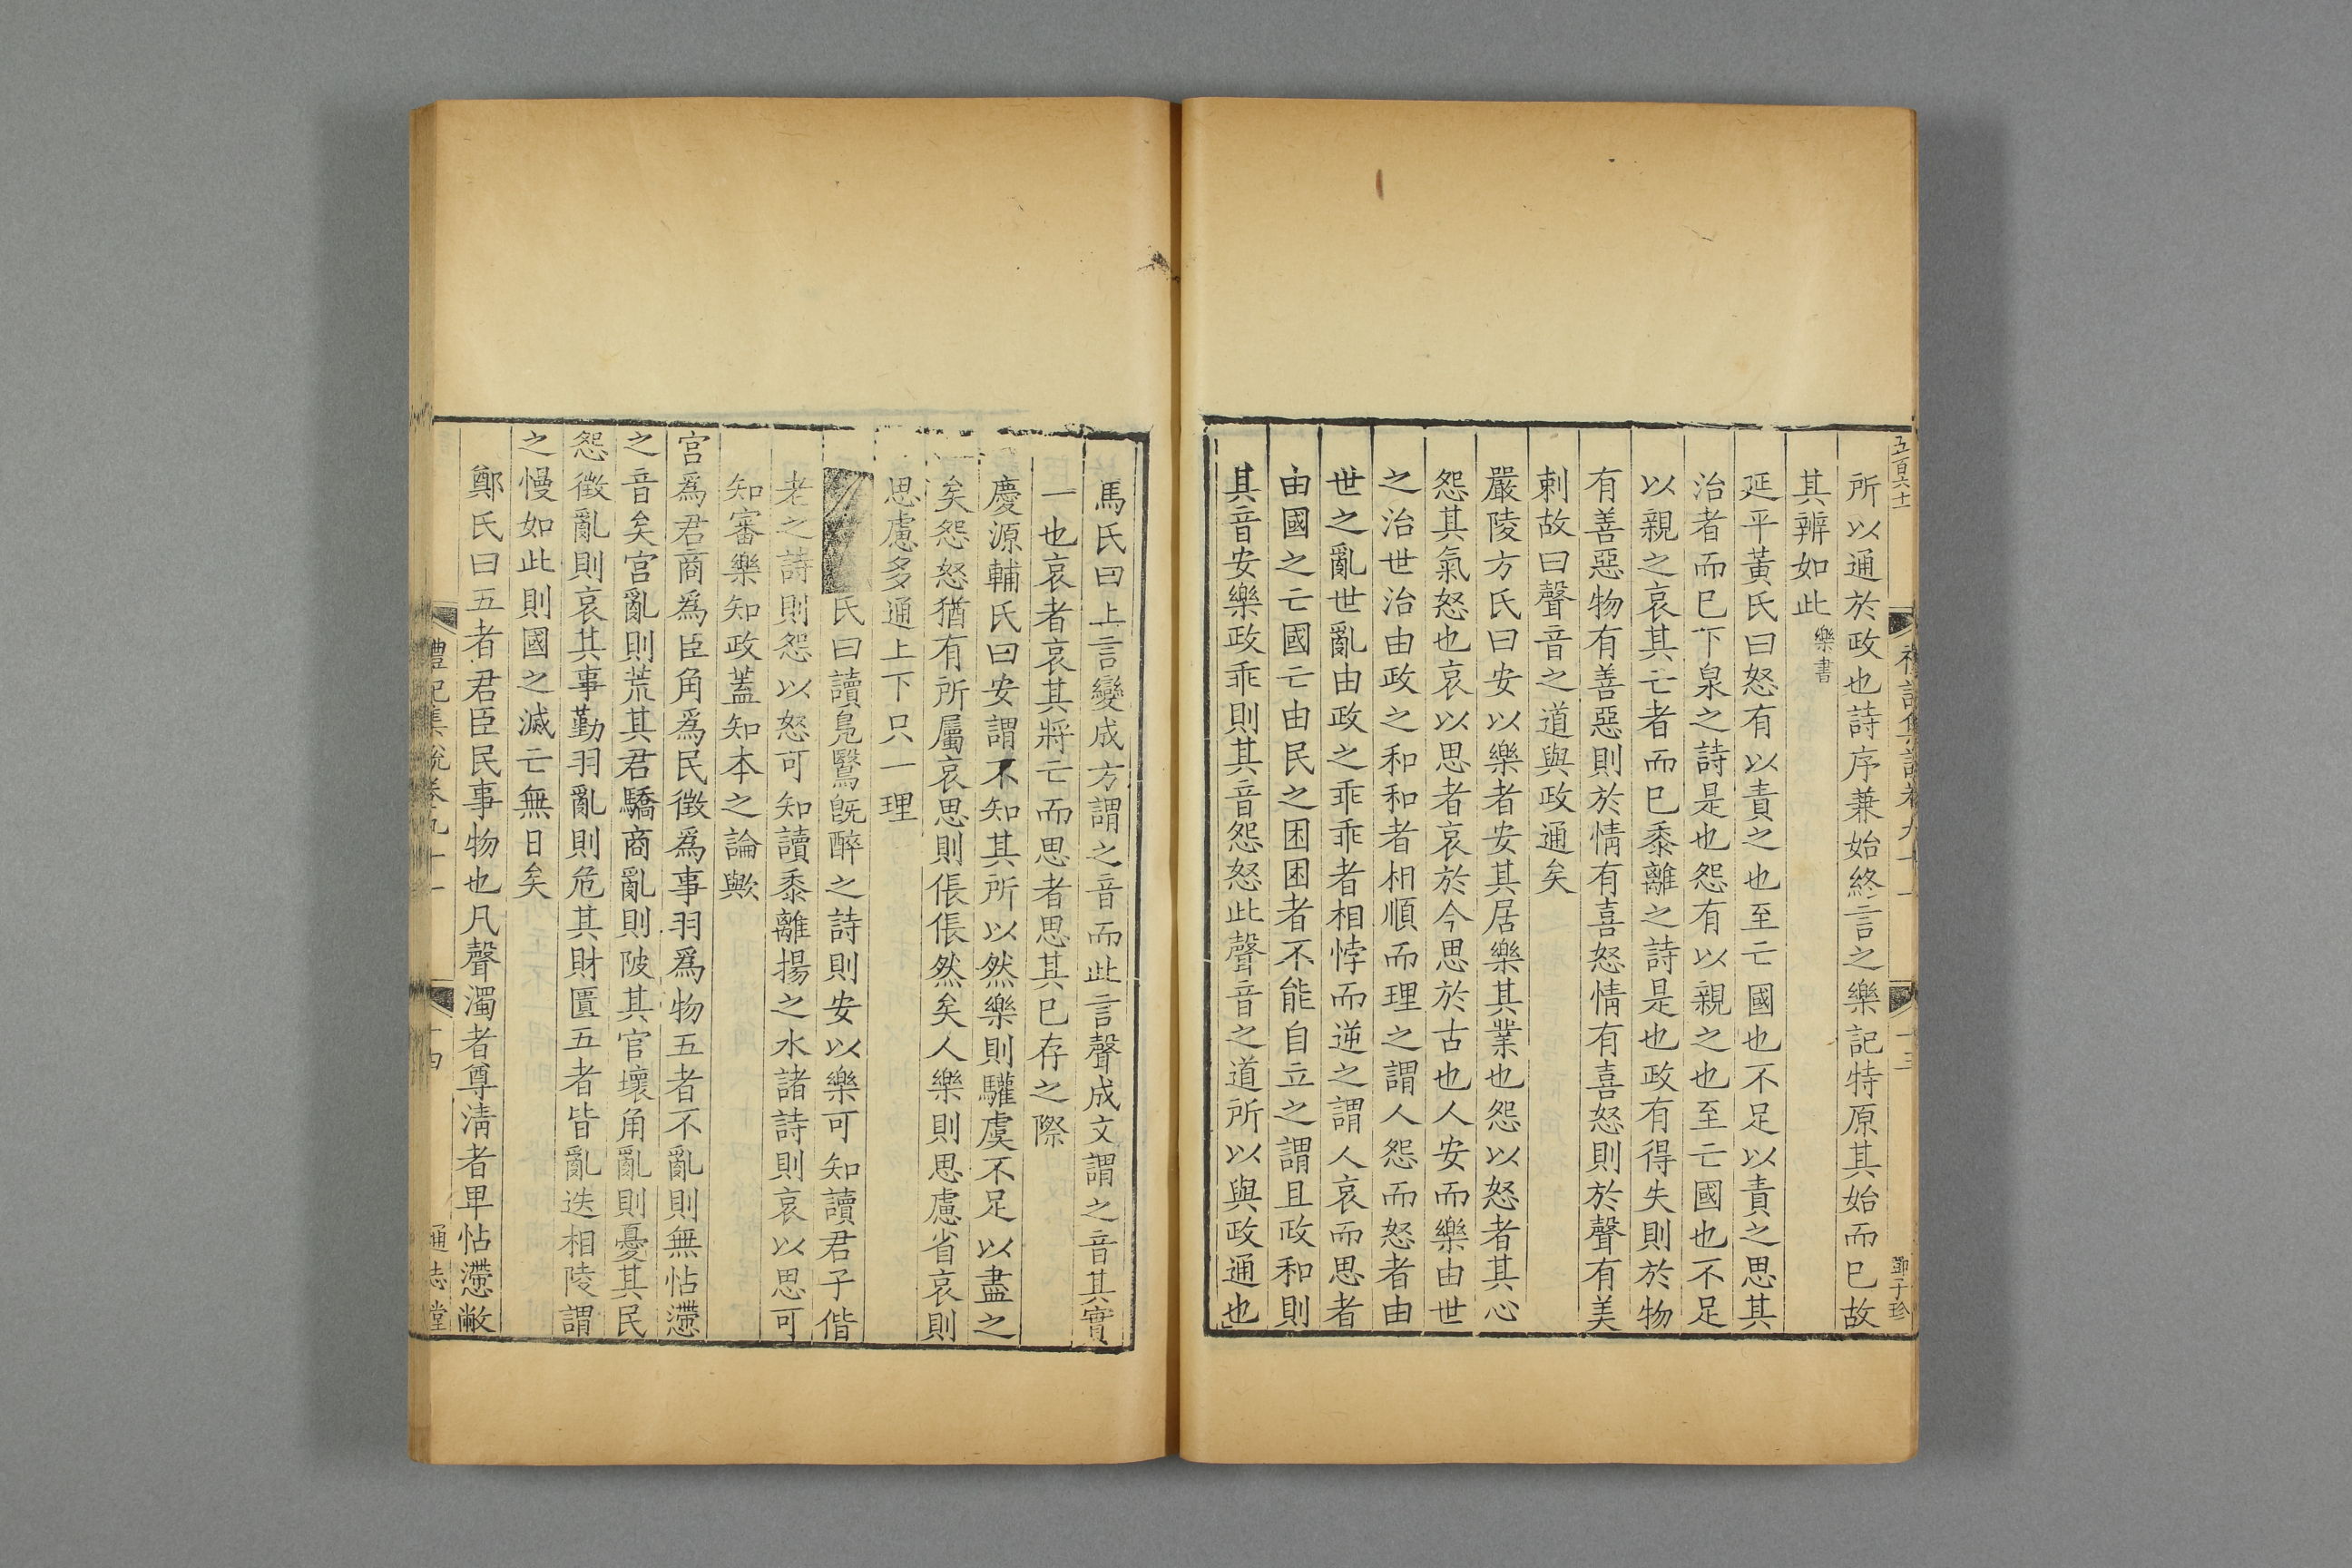 五百六十
禮記集說卷九十一
十三
鄧子珍
所以通於政也詩序兼始終言之樂記特原其始而已故
其辨如此樂書
延平黃氏曰怒有以責之也至亡國也不足以責之思其
治者而已下泉之詩是也怨有以親之也至亡國也不足
以親之哀其亡者而已黍離之詩是也政有得失則於物
有善惡物有善惡則於情有喜怒情有喜怒則於聲有美
刺故曰聲音之道與政通矣
嚴陵方氏曰安以樂者安其居樂其業也怨以怒者其心
怨其氣怒也哀以思者哀於今思於古也人安而樂由世
之治世治由政之和和者相順而理之謂人怨而怒者由
世之亂世亂由政之乖乖者相悖而逆之謂人哀而思者
由國之亡國亡由民之困困者不能自立之謂且政和則
其音安樂政乖則其音怨怒此聲音之道所以與政通也
馬氏曰上言變成方謂之音而此言聲成文謂之音其實
一也哀者哀其將亡而思者思其已存之際
慶源輔氏曰安謂不知其所以然樂則驩虞不足以盡之
矣怨怒猶有所屬哀思則倀倀然矣人樂則思慮省哀則
思慮多通上下只一理
氏曰讀鳧鷖旣醉之詩則安以樂可知讀君子偕
老之詩則怨以怒可知讀黍離揚之水諸詩則哀以思可
知審樂知政蓋知本之論歟
宮爲君商爲臣角爲民徵爲事羽爲物五者不亂則無怗懘
之音矣宮亂則荒其君驕商亂則陂其官壞角亂則憂其民
怨徵亂則哀其事勤羽亂則危其財匱五者皆亂迭相陵謂
之慢如此則國之滅亡無日矣
鄭氏曰五者君臣民事物也凡聲濁者尊淸者卑怗懘敝
禮記集說卷九十一
十四
通志堂